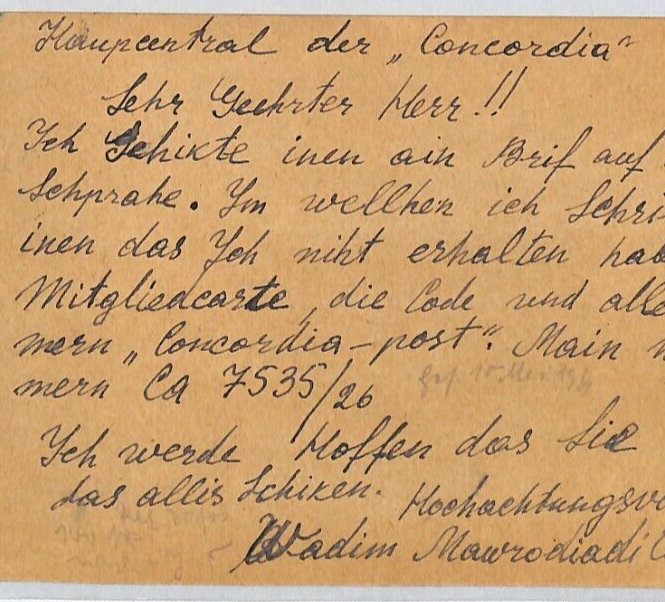 Haupcentral der „Concordia“
Sehr Geehrter Herr!!
Ich Schikte inen ain Brif auf
Schprahe. Im wellhen ich Schri
inen das Ich niht erhalten hab
Mitgliedcarte, die Code und alle
mern „Concordia-post“. Main n
mern Ca 7535/26
Ich werde Hoffen das Sie
das allis Schiken. Hochachtungsv
Wadim Mawrodiadi